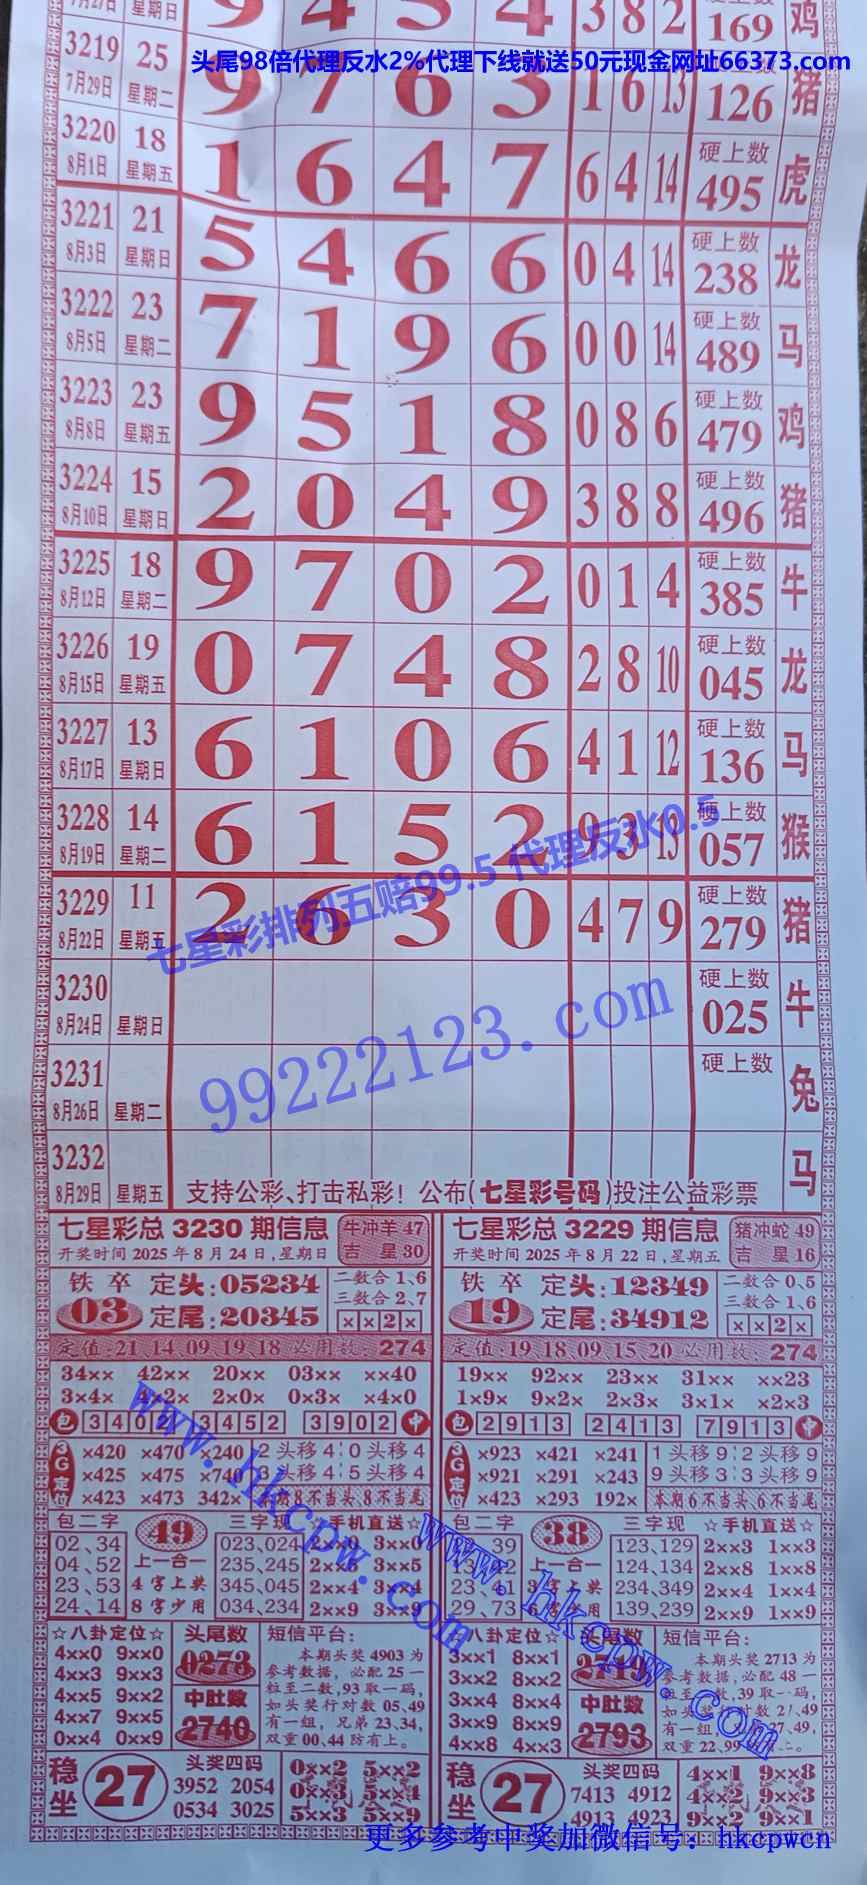 7月27日 星期日 9 4 5 4 3 8 2 硬上数 169 鸡
头尾98倍代理反水2%代理下线就送50元现金网址66373.com
3219 7月29日 25 星期二 9 7 6 3 1 6 13 126 猪
3220 8月1日 18 星期五 1 6 4 7 6 4 14 硬上数 495 虎
3221 8月3日 21 星期日 5 4 6 6 0 4 14 硬上数 238 龙
3222 8月5日 23 星期二 7 1 9 6 0 0 14 硬上数 489 马
3223 8月8日 23 星期五 9 5 1 8 0 8 6 硬上数 479 鸡
3224 8月10日 15 星期日 2 0 4 9 3 8 8 硬上数 496 猪
3225 8月12日 18 星期二 9 7 0 2 0 1 4 硬上数 385 牛
3226 8月15日 19 星期五 0 7 4 8 2 8 10 硬上数 045 龙
3227 8月17日 13 星期日 6 1 0 6 4 1 12 硬上数 136 马
3228 8月19日 14 星期二 6 1 5 2 9 3 13 硬上数 057 猴
七星彩排列五赔99.5 代理反水0.5
3229 8月22日 11 星期五 2 6 3 0 4 7 9 硬上数 279 猪
3230 8月24日 星期日 硬上数 025 牛
99222123.com
3231 8月26日 星期二 硬上数 兔
3232 8月29日 星期五 马
支持公彩、打击私彩！公布(七星彩号码)投注公益彩票
七星彩总 3230 期信息
开奖时间 2025 年 8 月 24 日,星期日
牛冲羊 47
吉 星 30
铁 卒 03
定头:05234
定尾:20345
二数合 1、6
三数合 2、7
××2×
定值:21 14 09 19 18 必用数:274
34×× 42×× 20×× 03×× ××40
3×4× 4×2× 2×0× 0×3× ×4×0
包 3402 3452 3902 中
3G定位
×420 ×470 ×240 2头移4 0头移4
×425 ×475 ×740 3头移4 5头移4
×423 ×473 342× 本期8不当头、8不当尾
包二字 49 三字现 ☆手机直送☆
02、34 上一合一 023,024 2××0 3××0
04、52 235、245 3××5
23、53 4字上奖 345、045 2××4 3××4
24、14 8字少用 034,234 2××9 3××9
☆八卦定位☆ 头尾数 短信平台:
4××0 9××0
4××3 9××3 0273
4××5 9××2 中肚数
4××7 9××5
0××4 0××9 2740
本期头奖 4903 为
参考数据，必配 25 一
粒至二数,93 取一码,
如头奖行对数 05、49
有一组，兄弟 23、34,
双重 00、44 防有上。
稳坐 27
头奖四码
3952 2054
0534 3025
0××2 5××2
0××3 5××3
5××3 5××9
七星彩总 3229 期信息
开奖时间 2025 年 8 月 22 日,星期五
猪冲蛇 49
吉 星 16
铁 卒 19
定头:12349
定尾:34912
二数合 0、5
三数合 1、6
××2×
定值:19 18 09 15 20 必用数:274
19×× 92×× 23×× 31×× ××23
1×9× 9×2× 2×3× 3×1× ×2×3
包 2913 2413 7913 中
3G定位
×923 ×421 ×241 1头移9 2头移9
×921 ×291 ×243 9头移3 3头移9
×423 ×293 192× 本期6不当头、6不当尾
包二字 38 三字现 ☆手机直送☆
39 上一合一 123,129 2××3 1××3
124,134 2××8 1××8
234,349 2××4 1××4
29、73 139,239 2××9 1××9
八卦定位☆ 头尾数 短信平台:
3××1 8××1
3××2 8××2
3××4 8××4 中肚数
3××9 9××8
4××8 4××3 2793
本期头奖 2713 为
参考数据，必配 48 一
粒至二数,39 取一码,
稳坐 27
头奖四码
7413 4912
4913 4923
4××1 9××8
4××2 9××3
9××2 9××1
www.hkcpw.com
www.hkcpw.com
更多参考中奖加微信号：hkcpwcn